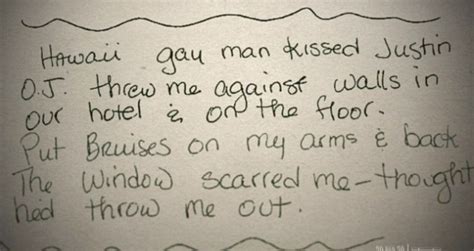 Hawaii gay man kissed Justin
O.J. threw me against walls in
our hotel & on the floor.
Put Bruises on my arms & back
The window scarred me – thought
he'd throw me out.